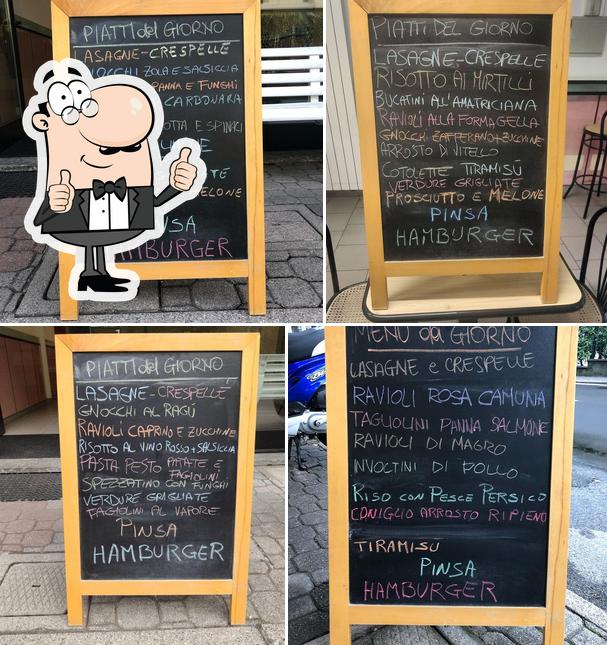 PIATTI del GIORNO
LASAGNE-CRESPELLE
GNOCCHI ZOLA E SALSICCIA
PANNA E FUNGHI
CARBONARA
E SPINACI
MELONE
HAMBURGER
PIATTI DEL GIORNO
LASAGNE-CRESPELLE
RISOTTO AI MIRTILLI
BUCATINI ALL'AMATRICIANA
RAVIOLI ALLA FORMAGELLA
GNOCCHI ZAFFERANO+ZUCCHINE
ARROSTO DI VITELLO
COTOLETTE TIRAMISÚ
VERDURE GRIGLIATE
PROSCIUTTO E MELONE
PINSA
HAMBURGER
PIATTI del GIORNO
LASAGNE-CRESPELLE
GNOCCHI AL RAGÚ
RAVIOLI CAPRINO E ZUCCHINE
RISOTTO AL VINO ROSSO+SALSICCIA
PASTA PESTO PATATE E
FAGIOLINI
SPEZZATINO CON FUNGHI
VERDURE GRIGLIATE
FAGIOLINI AL VAPORE
PINSA
HAMBURGER
MENU del GIORNO
LASAGNE e CRESPELLE
RAVIOLI ROSA CAMUNA
TAGLIOLINI PANNA SALMONE
RAVIOLI DI MAGRO
INVOLTINI DI POLLO
RISO CON PESCE PERSICO
CONIGLIO ARROSTO RIPIENO
TIRAMISÚ
PINSA
HAMBURGER